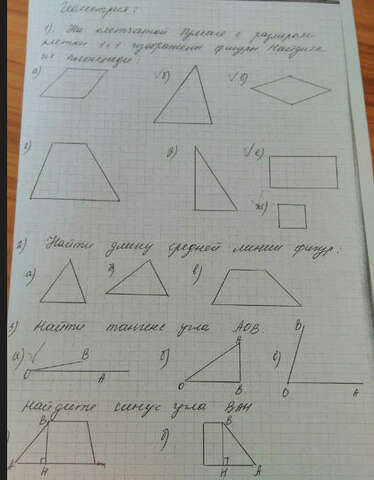 Геометрия:
1). На клетчатой бумаге с размером
клетки 1×1 изображены фигуры. Найдите
их площади:
а) √б) √в)
г) д) √е)
ж)
2) Найти длину средней линии фигур:
а) б) в)
3) Найти тангенс угла AOB.
а) B O A б) A O B в) B O A
Найдите синус угла BAH
B A H б) B H A